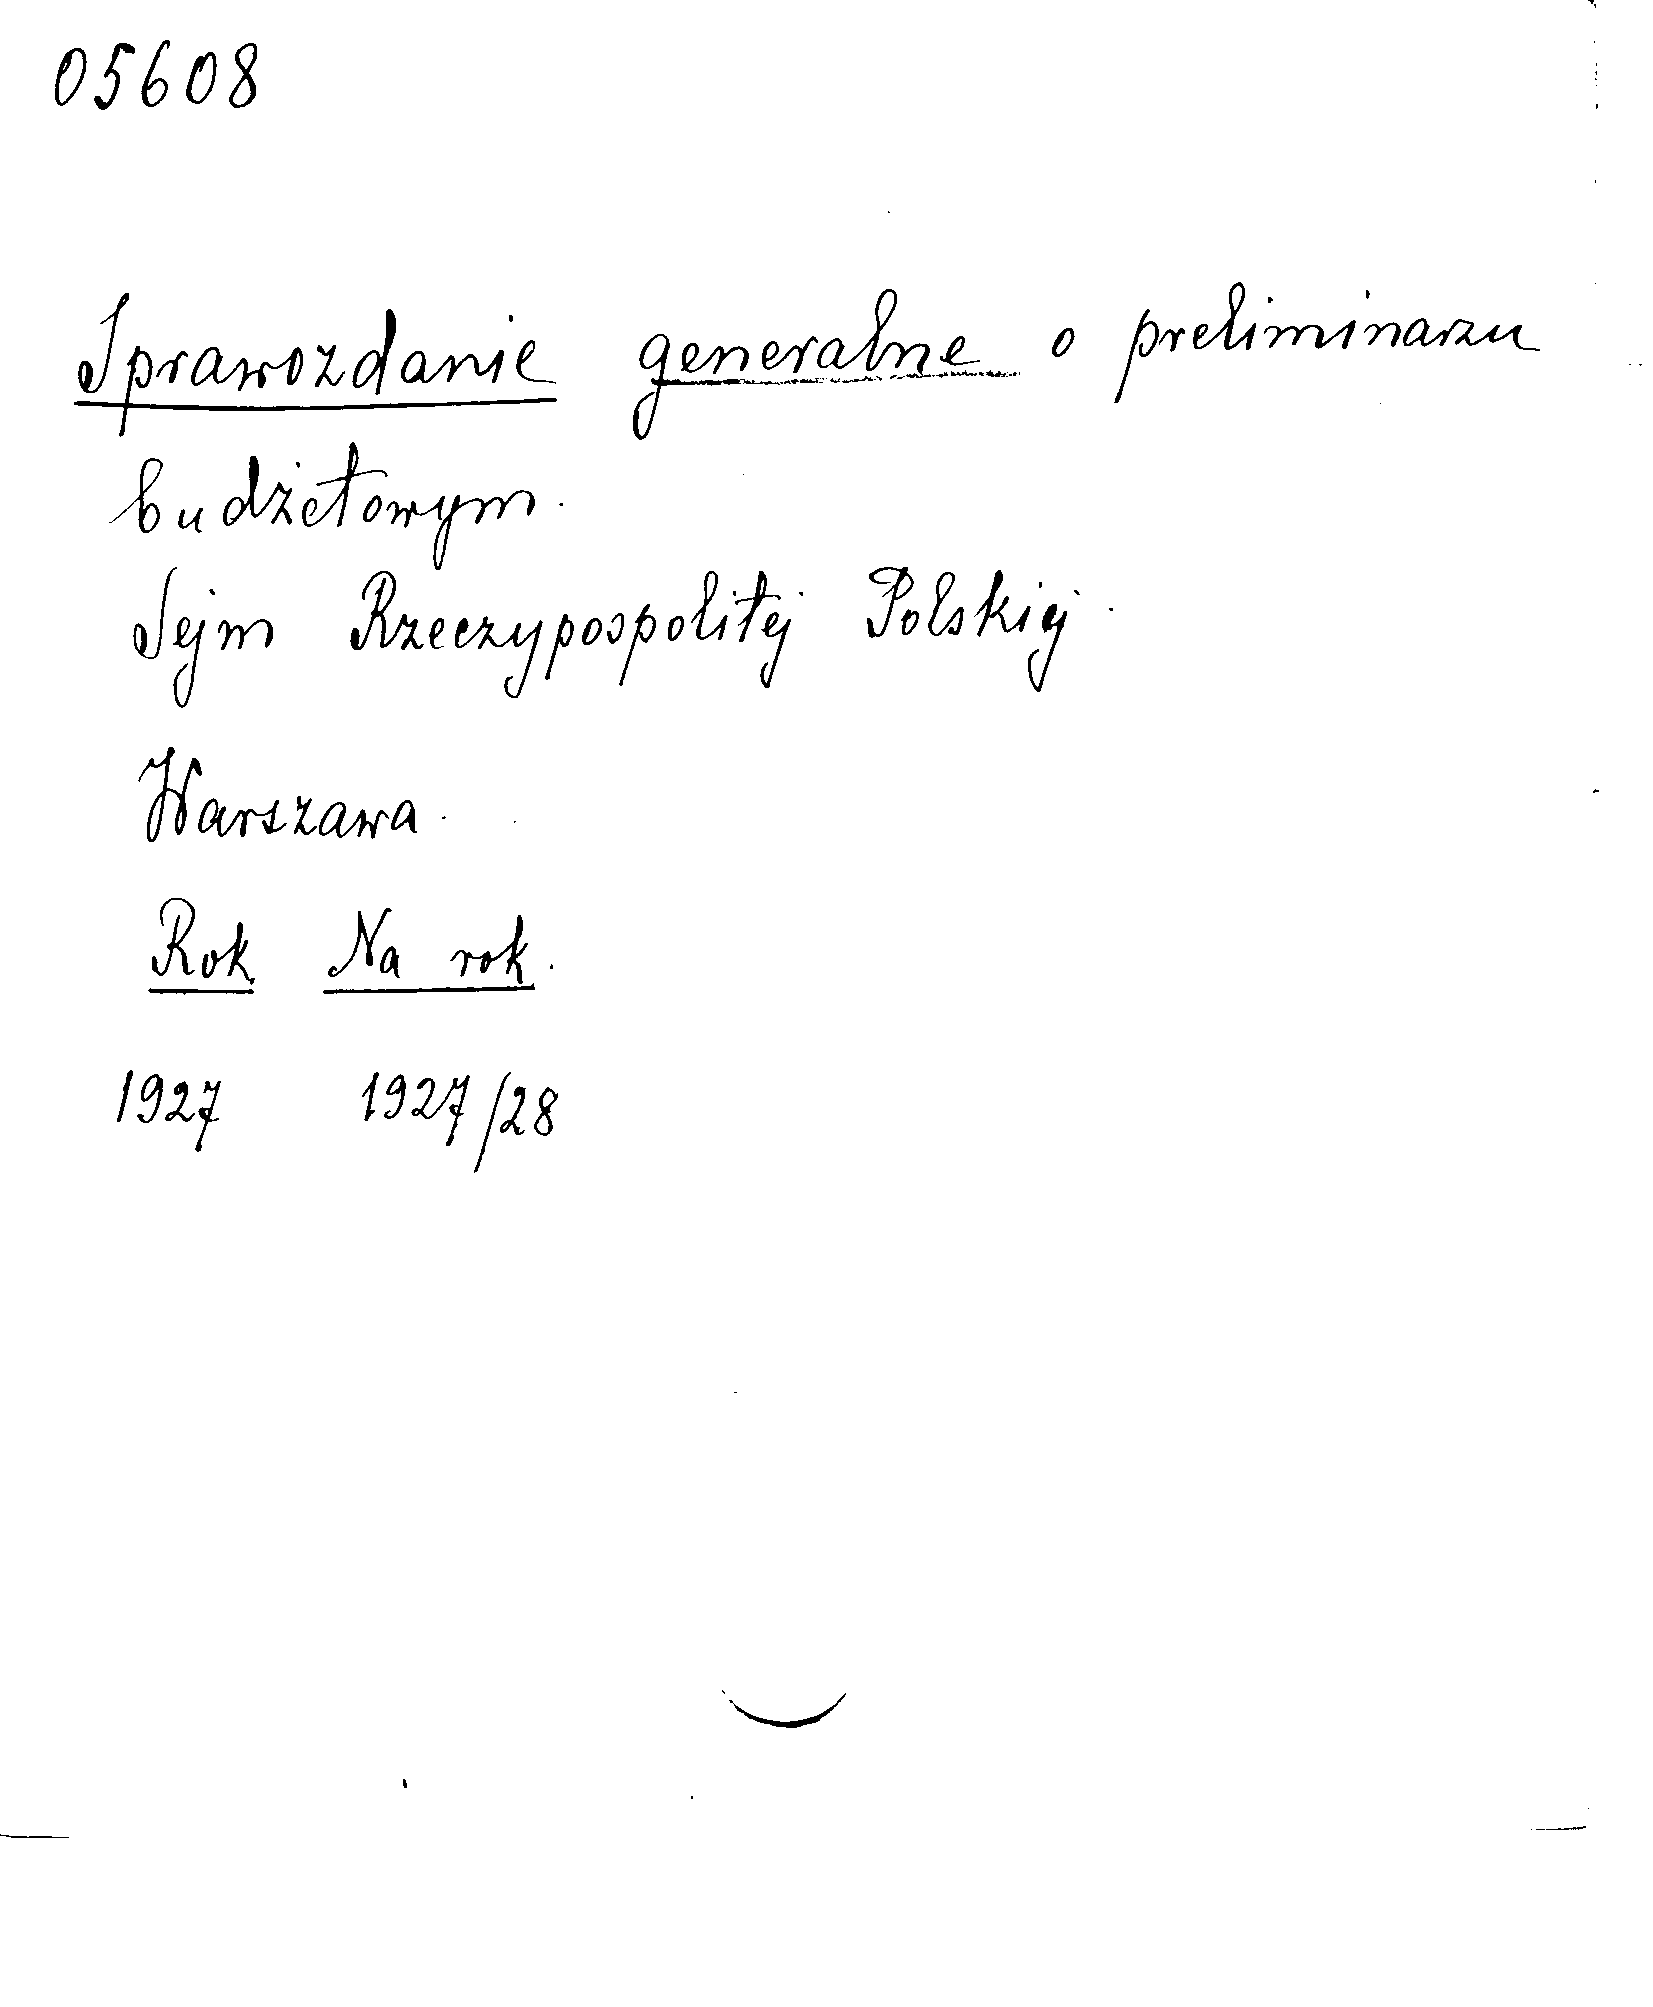 05608
Sprawozdanie generalne o preliminarzu
budżetowym.
Sejm Rzeczypospolitej Polskiej.
Warszawa.
Rok Na rok.
1927 1927/28